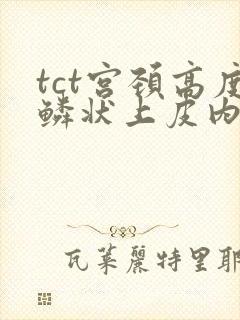 tct宫颈高度
鳞状上皮内
瓦莱丽特里耶